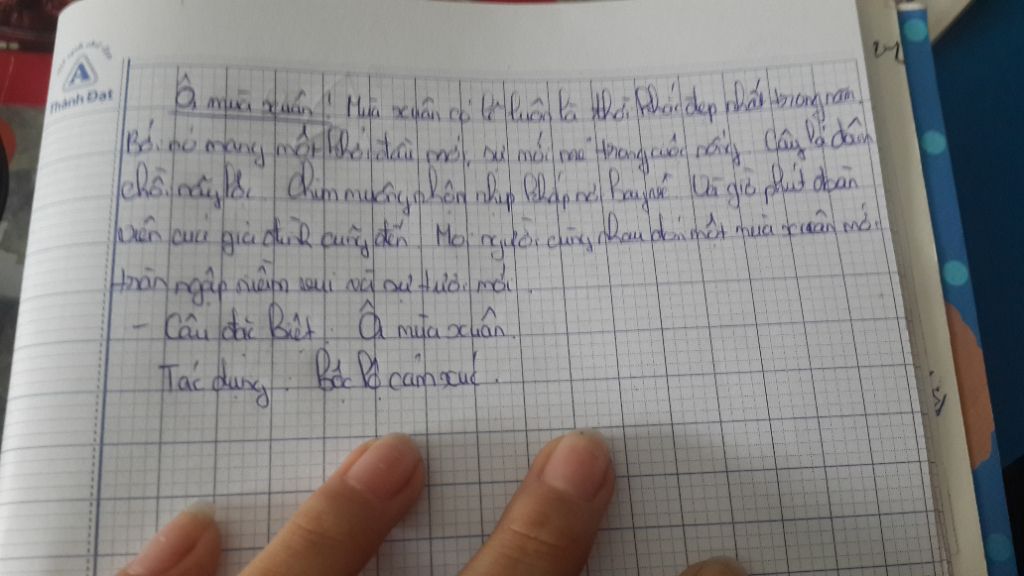 Thành Đạt
Ôi mùa xuân! Mùa xuân có lẽ luôn là thời khắc đẹp nhất trong năm.
Bởi nó mang một khởi đầu mới, sự mới mẻ trong cuộc sống. Cây lá đâm
chồi nảy lộc. Chim muông nhộn nhịp khắp nơi Và giờ phút đoàn
viên của gia đình cũng đến. Mọi người cùng nhau đón một mùa xuân mới
tràn ngập niềm vui và sự tươi mới.
- Câu đặc biệt: Ôi mùa xuân.
Tác dụng: Bộc lộ cảm xúc.